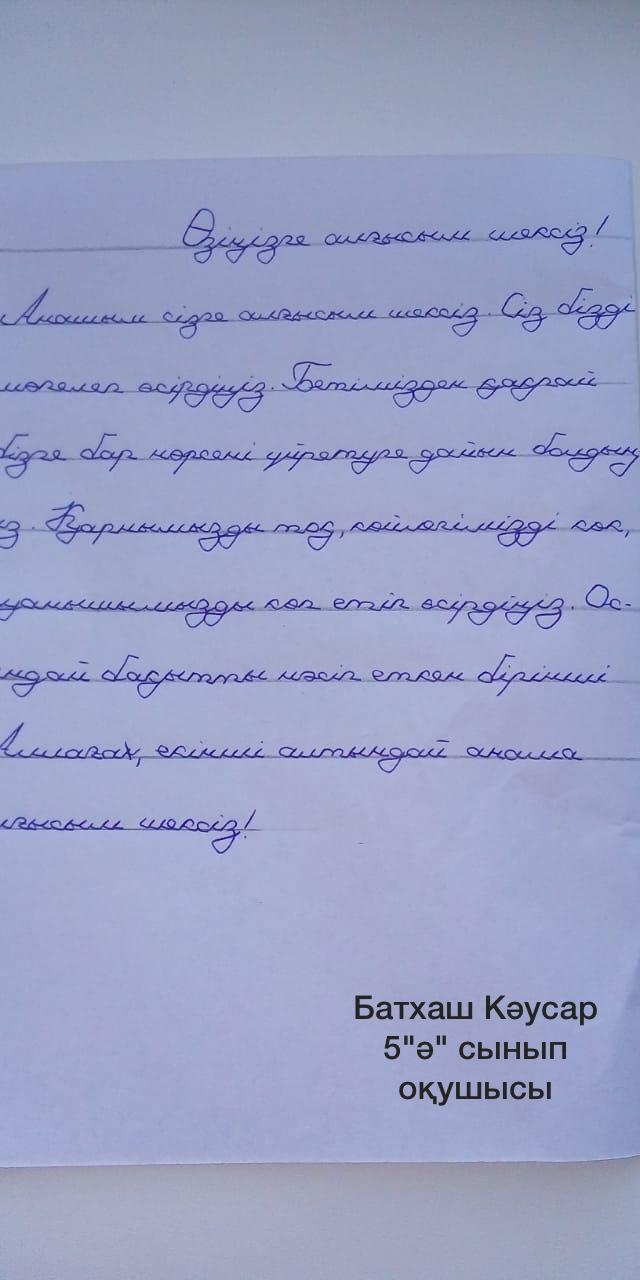 Өзіңізге алғысым шексіз!
Анашым сізге алғысым шексіз. Сіз бізді
мәпелеп өсірдіңіз. Бетімізден қақпай
бізге бар нәрсені үйретуге дайын болдың
із. Қарнымызды тоқ, көйлегімізді көк,
уанышымызды көп етіп өсірдіңіз. Ос-
ындай бақытты нәсіп еткен бірінші
Аллаға, екінші алтындай анама
лғысым шексіз!
Батхаш Кәусар
5"ә" сынып
оқушысы